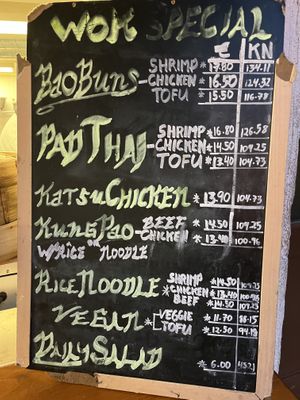 WOK SPECIAL
€ KN
BAO BUNS - SHRIMP * 17.80 134.11
CHICKEN * 16.50 124.32
TOFU * 15.50 116.78
PAD THAI - SHRIMP * 16.80 126.58
CHICKEN * 14.50 109.25
TOFU * 13.40 104.73
KATSU CHICKEN * 13.90 104.73
KUNG PAO - BEEF * 14.50 109.25
W/RICE OR NOODLE CHICKEN * 13.40 100.96
RICE NOODLE SHRIMP * 14.50 109.25
CHICKEN * 13.40 100.96
BEEF * 14.50 109.25
VEGAN * VEGGIE * 11.70 88.15
* TOFU * 12.50 94.18
DAILY SALAD * 6.00 45.21